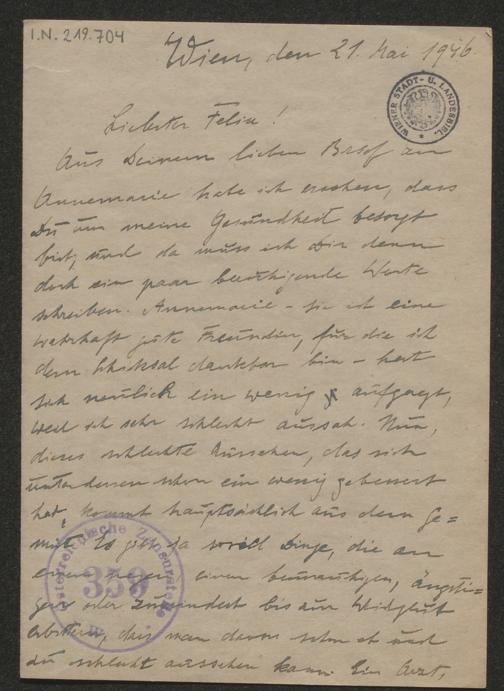 I.N. 219.704
Wien, den 21. Mai 1946.
WIENER STADT- U. LANDESBIBL.
Liebster Felix!
Aus Deinem lieben Brief an
Annemarie habe ich ersehen, dass
Du um meine Gesundheit besorgt
bist, und da muss ich Dir denn
doch ein paar beruhigende Worte
schreiben. Annemarie – sie ist eine
wahrhaft gute Freundin, für die ich
dem Schicksal dankbar bin – hat
sich neulich ein wenig aufgeregt,
weil ich sehr schlecht aussah. Nun,
dieses schlechte Aussehen, das sich
unterdessen schon ein wenig gebessert
hat, kommt hauptsächlich aus dem Ge=
müt. Es gibt ja soviel Dinge, die an
einem nagen, einen beunruhigen, ängsti=
gen oder zumindest bis zur Weissglut
erbittern, dass man davon schon ab und
zu schlecht aussehen kann. Ein Arzt,
Österreichische Zensurstelle
359
W